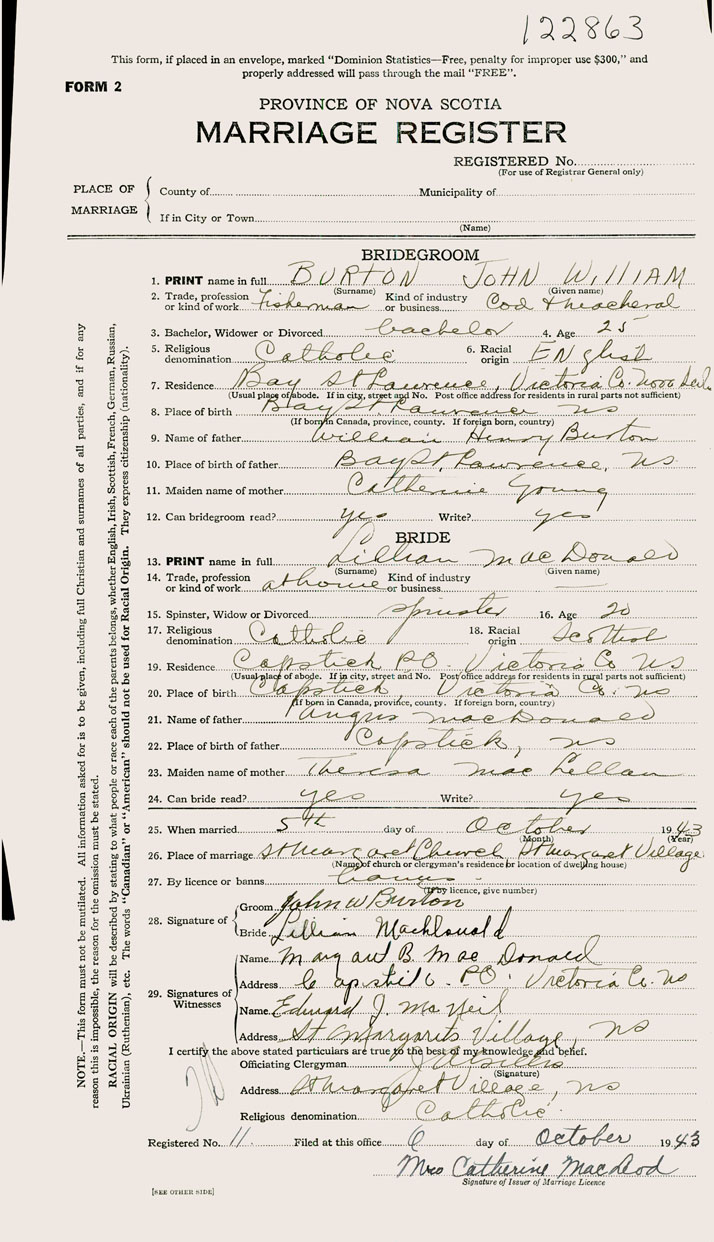 122863
This form, if placed in an envelope, marked "Dominion Statistics—Free, penalty for improper use $300," and
properly addressed will pass through the mail "FREE".
FORM 2
PROVINCE OF NOVA SCOTIA
MARRIAGE REGISTER
REGISTERED No.
(For use of Registrar General only)
PLACE OF MARRIAGE
County of Municipality of
If in City or Town
(Name)
NOTE.—This form must not be mutilated. All information asked for is to be given, including full Christian and surnames of all parties, and if for any
reason this is impossible, the reason for the omission must be stated.
RACIAL ORIGIN will be described by stating to what people or race each of the parents belongs, whether English, Irish, Scottish, French, German, Russian,
Ukrainian (Ruthenian), etc. The words "Canadian" or "American" should not be used for Racial Origin. They express citizenship (nationality).
BRIDEGROOM
1. PRINT name in full BURTON JOHN WILLIAM
(Surname) (Given name)
2. Trade, profession or kind of work Fisherman Kind of industry or business Cod & macheral
3. Bachelor, Widower or Divorced bachelor 4. Age 25
5. Religious denomination Catholic 6. Racial origin ENglish
7. Residence Bay St Lawrence, Victoria Co. Nova
(Usual place of abode. If in city, street and No. Post office address for residents in rural parts not sufficient)
8. Place of birth Bay St. Lawrence NS
(If born in Canada, province, county. If foreign born, country)
9. Name of father William Henry Burton
10. Place of birth of father Bay St. Lawrence, NS
11. Maiden name of mother Catherine Young
12. Can bridegroom read? yes Write? yes
BRIDE
13. PRINT name in full Lillian MacDonald
(Surname) (Given name)
14. Trade, profession or kind of work at home Kind of industry or business
15. Spinster, Widow or Divorced spinster 16. Age 20
17. Religious denomination Catholic 18. Racial origin Scottish
19. Residence Capstick PO. Victoria Co NS
(Usual place of abode. If in city, street and No. Post office address for residents in rural parts not sufficient)
20. Place of birth Capstick, Victoria Co. NS
(If born in Canada, province, county. If foreign born, country)
21. Name of father Angus MacDonald
22. Place of birth of father Capstick, NS
23. Maiden name of mother Theresa MacLellan
24. Can bride read? yes Write? yes
25. When married 5th day of October 1943
(Month) (Year)
26. Place of marriage St Margaret Church St Margaret Village
(Name of church or clergyman's residence or location of dwelling house)
27. By licence or banns banns
(If by licence, give number)
28. Signature of
Groom John W Burton
Bride Lillian MacDonald
29. Signatures of Witnesses
Name Margaret B. Mac Donald
Address Capstick PO. Victoria Co. NS
Name Edward J. McNeil
Address St Margarets Village, NS
I certify the above stated particulars are true to the best of my knowledge and belief.
Officiating Clergyman
(Signature)
Address St Margaret Village, NS
Religious denomination Catholic
Registered No. 11. Filed at this office 6 day of October 1943
Mrs Catherine MacLeod
Signature of Issuer of Marriage Licence
[SEE OTHER SIDE]